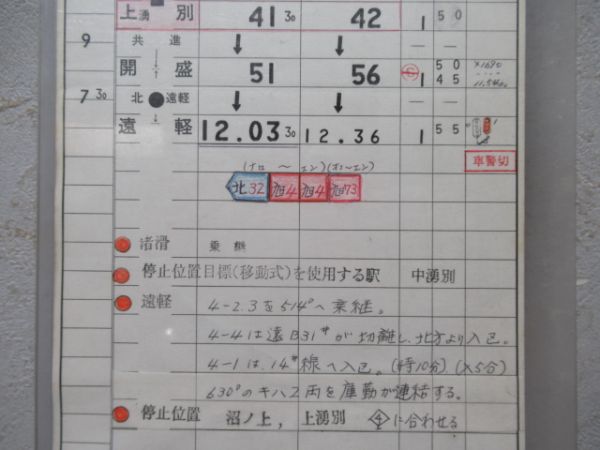 上湧別 41 30 42 1 50
9 共進 ↓ ↓ — —
開盛 51 56 1 50 45
7 30 北●遠軽 ↓ ↓ — —
遠軽 12.03 30 12.36 1 55
車警切
北32 旭4 旭4 旭73
渚滑 乗継
停止位置目標(移動式)を使用する駅 中湧別
遠軽 4-2.3を514°へ乗継。
4-4は遠B31#が切離し、北方より入区。
4-1は、14#線へ入区。(待10分)(入5分)
630°のキハ2両を庫勤が連結する。
停止位置 沼ノ上, 上湧別 4に合わせる